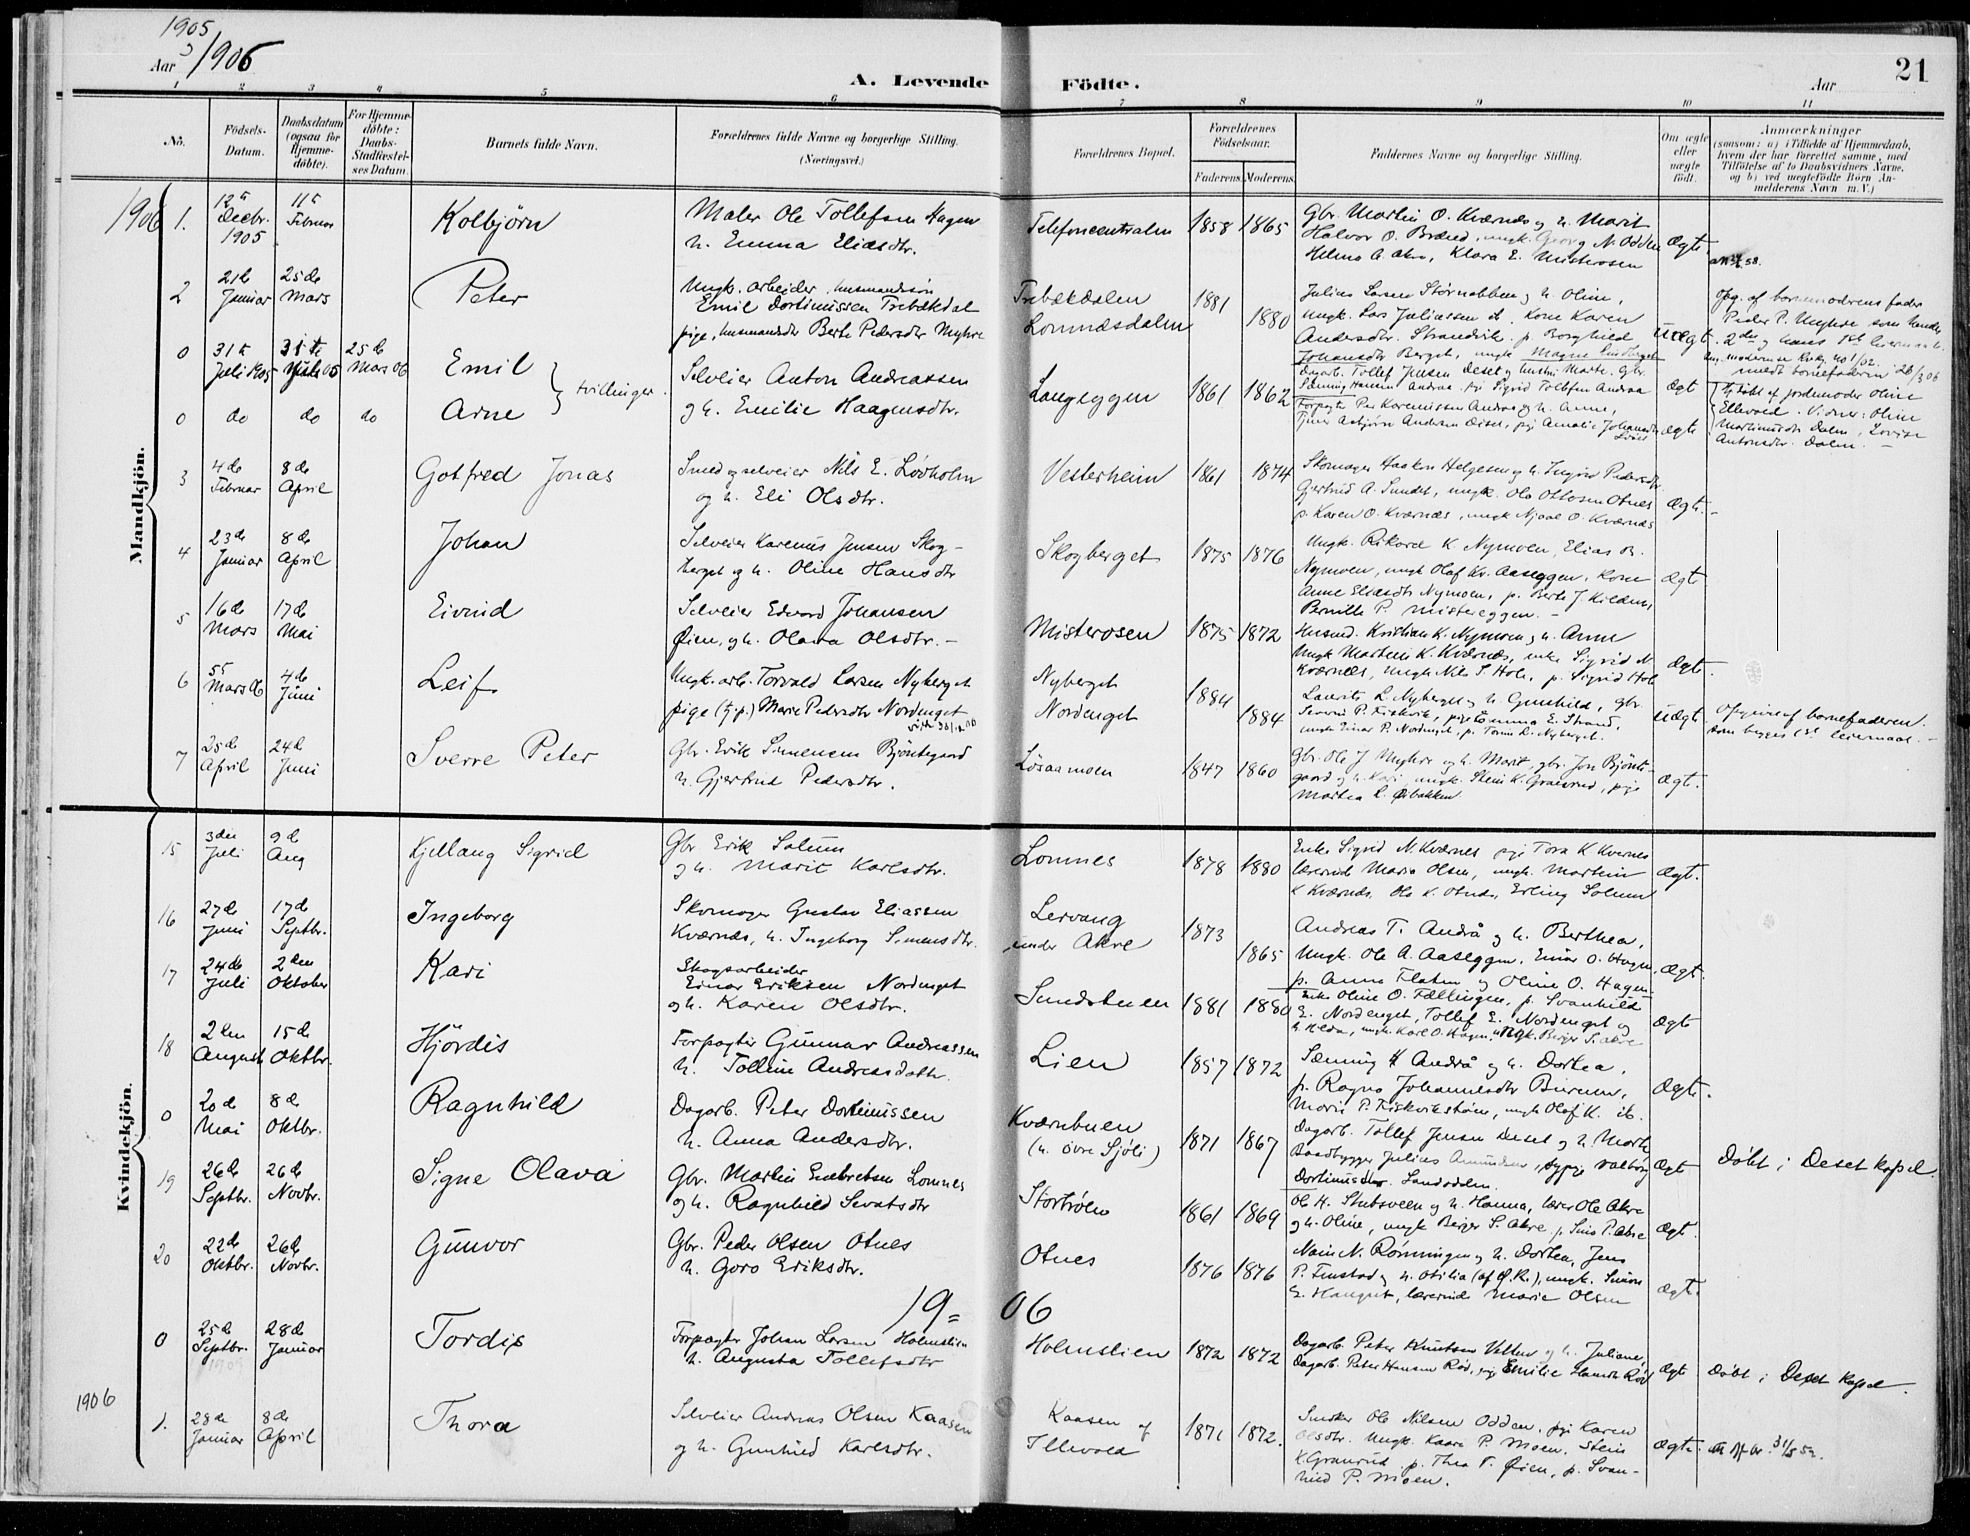 1905
Aar 1906
A. Levende Födte.
Aar
21
1 2 3 4 5 6 7 8 9 10 11
No.
Födsels-Datum.
Daabsdatum (ogsaa for Hjemme-döbte).
For Hjemme-döbte: Daabs-Stadfæstel-ses Datum.
Barnets fulde Navn.
Forældrenes fulde Navne og borgerlige Stilling.
(Næringsvei.)
Forældrenes Bopæl.
Forældrenes Födselsaar.
Faderens. Moderens.
Faddernes Navne og borgerlige Stilling.
Om ægte eller uægte födt.
Anmærkninger
(saasom: a) i Tilfælde af Hjemmedaab,
hvem der har forrettet samme, med
Tilföielse af to Daabsvidners Navne,
og b) ved uægtefödte Börn An-
melderens Navn m. V.)
Mandkjön.
1906 1. 12te Decbr. 1905 11te Februar Kolbjörn
Maler Ole Tollefsen Hagen
h. Emma Eliasdtr.
Telefoncentralen 1858 1865
Gbr. Martin O. Kværnes og h. Marit
Halvor O. Bræned, ungk. Georg N. Odden
Helma A. Akre, Klara E. Misterosen
ægte
2 21de Januar 25de Mars Peter
Ungk. arbeider, husmandssön
Emil Dortinussen Trebækdal
pige, husmandsdtr Berte Pedersdtr Myhre
Trebækdalen
Lomnæsdalen
1881 1880
Julius Larsen Störnabben og h. Oline,
ungk. Lars Juliussen d. Kone Karen
Andersdtr. Strandvik. p. Borghild
Johansdtr Berget, ungk Magne Sundberget
uægte
Opg. af barnemoderens fader
Peder P. Myhre som hendes
0 31te Juli 1905 31te Juli 05 25de Mars 06 Emil
0 do do do Arne
} tvillinger.
Selveier Anton Andreassen
og h. Emilie Haagensdtr.
Langeggen 1861 1862
Dagarb. Tollef Jensen Deset og hustru Marte. Gbr.
Sæming Hansen Andraa. pige Sigrid Tollefsen Andraa
Forpagter Per Karenussen Andraa og h. Anne,
ægte
ægte
Hj.döbt af jordemoder Oline
Ellevold. Vidner: Oline
Martinusdtr Dalen, Lovise
Antonsdtr. Dalen. –
3 4de Februar 8de April Gotfred Jonas
Smed og selveier Nils E. Lövholm
og h. Eli Olsdtr.
Vesterheim 1861 1874
Skomager Haaken Helgesen og h. Ingrid Pedersdtr.
Gjertrud A. Sundet, ungk. Ole Ottosen Otnes
p. Karen O. Kværnes, ungk Njaal O. Kværnes
ægte
4 23de Januar 8de April Johan
Selveier Karenus Jensen Skog-
berget og h. Oline Hansdtr
Skogberget 1875 1876
Ungk. Rikard K. Nymoen, Elias B.
Nymoen, ungk Olaf Kr. Aaseggen, Kone
Anne Eliasdtr Nymoen, p. Berte J Kilden,
Pernille P. Mistereggen. –
ægte
5 16de Mars 17de Mai Eivind
Selveier Edvard Johansen
Öien, og h. Olava Olsdtr. –
Misterosen 1875 1872
Husmd. Kristian K. Nymoen og h. Anne
Ungk Martin K. Kværnes, enke Sigrid N.
Kværnes, Ungk Nils S. Hole, p. Sigrid Hole
ægte
6 Mars 06 4de Juni Leif
Ungk. arb. Torvald Larsen Nyberget
pige (tj.p.) Marie Pedersdtr Nordenget
Nyberget
Nordenget
1884 1884
Laurits L. Nyberget og h. Gunhild, gbr.
Severin P. Fiskvik, pige Emma E. Strand,
ungk Einar P. Nordenget, p. Torine L. Nyberget.
uægte
Opgivne af barnefaderen.
Som begges 1st leiermaal. –
7 25de April 24de Juni Sverre Peter
Gbr. Erik Simensen Bjöntegaard
h. Gjertrud Pedersdtr.
Lösaamoen 1847 1860
Gbr. Ole J Myhre og h. Marit, gbr. Jon Bjönte-
gaard og h. Kari, ungk. Stein K. Granerud, pige
Martea L. Öibakken
ægte.
Kvindekjön.
15 3die Juli 9de Aug Kjellaug Sigrid
Gbr. Erik Solum
og h. Marit Karlsdtr.
Lomnes 1878 1880
Enke Sigrid N. Kværnes pige Tora K Kvernes
lærerinde Marie Olsen, ungk. Martin
K Kværnes, Ole K. Otnes, Erling Solum
ægte.
16 27de Juni 17de Septbr. Ingeborg
Skomager Gustav Eliassen
Kværnes, h. Ingeborg Simensdtr.
Lervang
under Akre
1873 1865
Andreas T. Andrå og h. Berthea,
Ungk. Ole A. Aaseggen, Einar O. Hagen,
p. Anna Flaten og Oline O. Hagen
ægte.
17 24de Juli 2den Oktober Kari
Skogsarbeider
Einar Eriksen Nordenget
og h. Karen Olsdtr.
Sundstuen 1881 1880
Enke Oline O. Fællingen, p. Svanhild
E. Nordenget, Tollef E. Nordenget og
ægte
18 2den August 15de Oktbr. Hjördis
Forpagter Gunnar Andreassen
h. Tolline Andreasdatter
Lien 1857 1872
Sæming H Andrå og h. Dortea,
p. Ragna Johannesdtr Buruen,
Marie P. Fiskvikström, ungk Olaf K. ib.
ægte.
0 20de Mai 8de Oktbr. Ragnhild
Dagarb. Peter Dortinussen
h. Anna Andersdtr.
Kværnbuen
(u. Övre Sjöli)
1871 1867
Dagarb. Tollef Jensen Deset og h. Marte
Baadbygger Julius Amundsen, sypige Valborg
Dortinusdtr. Sandodden.
ægte
Döbt i Deset kapel.
19 26de Septbr. 26de Novbr. Signe Olava
Gbr. Martin Embretsen Lomnes
og h. Ragnhild Sevatsdtr
Storbröen 1861 1869
Ole H. Stubsveen og h. Hanna, lærer Ole Akre
og h. Oline, ungk Berger S. Akre p. Sina P. Akre
ægte.
20 22de Oktbr. 26de Novbr. Gunvor
Gbr. Peder Olsen Otnes
h. Goro Eriksdtr.
Otnes 1876 1876
Nain N. Rönningen og h. Dortea, Jens
P. Finstad og h. Otilia (af Ö.R.), ungk. Simon
E. Hanget, lærerinde Marie Olsen
ægte.
19= 06
0 25de Septbr. 1905 28de Januar Tordis
Forpagter Johan Larsen Holmslien
h. Augusta Tollefsdtr
Holmslien 1872 1872
Dagarb. Peter Knutsen Velten og h. Juliane,
Dagarb. Peter Hansen Röd, pige Emilie Hansdtr Röd
ægte
Döbt i Deset kapel.
1906
1. 28de Januar 8de April Thora
Selveier Andreas Olsen Kaasen
og h. Gunhild Karlsdtr.
Kaasen af
Illevold
1871 1872.
Snekker Ole Nilsen Odden, pige Karen
Olsdtr. Ungk. Kaare P. Moen, Stein
K. Granerud, p. Thea T. Öien, p. Svan-
hild P. Moen.
ægte.